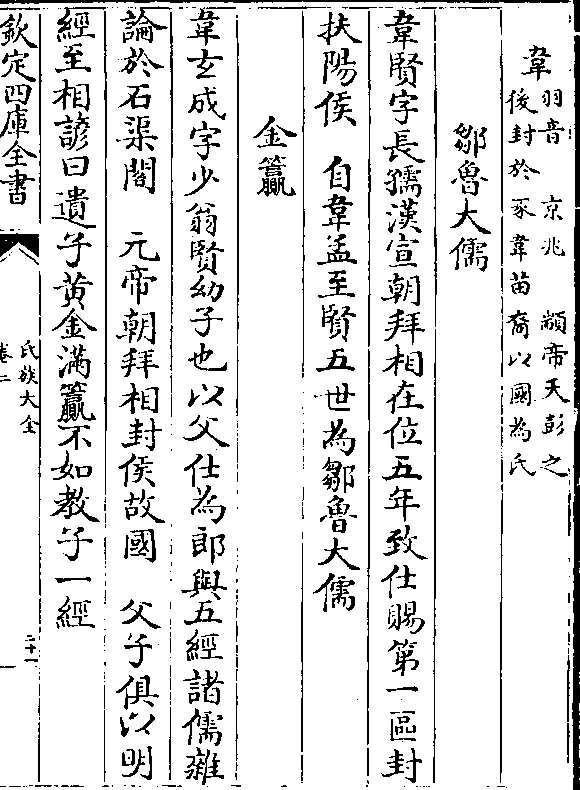 韋 羽音 京兆 顓帝大彭之
後封於豕韋苗裔以國為氏
鄒魯大儒
韋賢字長孺漢宣朝拜相在位五年致仕賜第一區封
扶陽侯 自韋孟至賢五世為鄒魯大儒
金籯
韋玄成字少翁賢幼子也以父仕為郎與五經諸儒雜
論於石渠閣 元帝朝拜相封侯故國 父子俱以明
經至相諺曰遺子黄金滿籯不如教子一經
欽定四庫全書
氏族大全
卷二
二十一